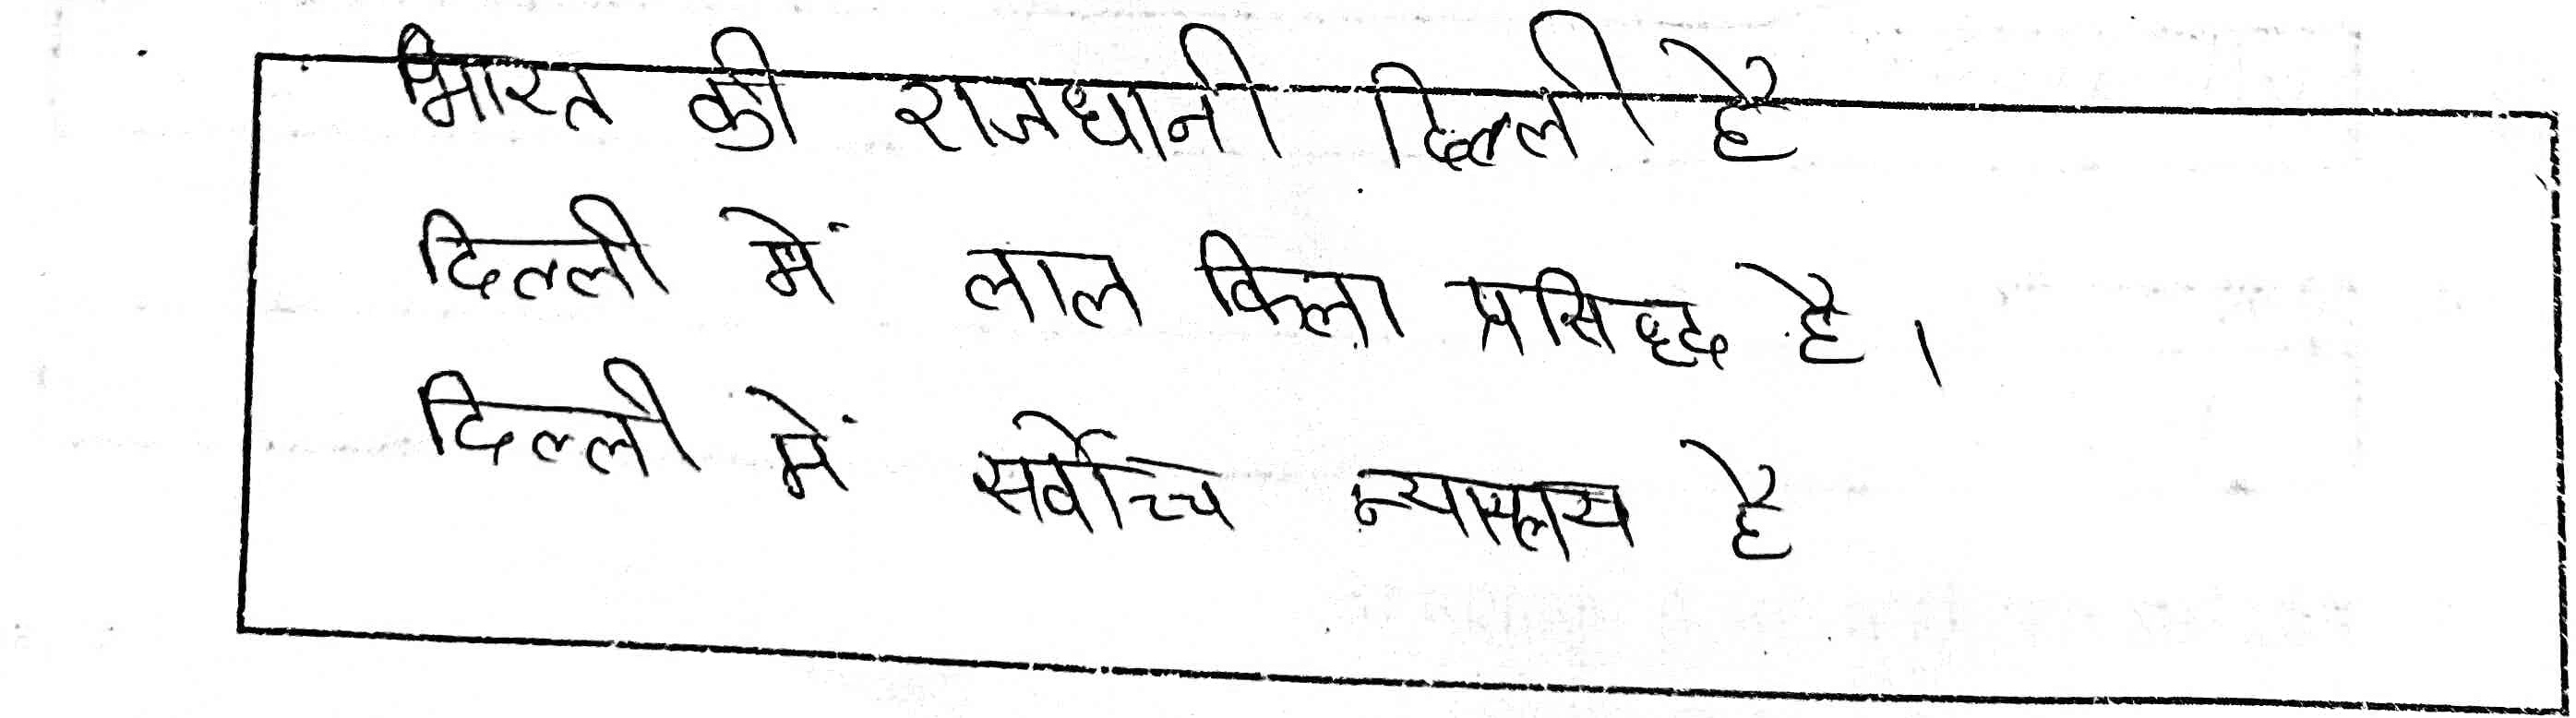 भारत की राजधानी दिल्ली है
दिल्ली में लाल किला प्रसिध्द है ।
दिल्ली में सर्वोच्च न्यायलय है